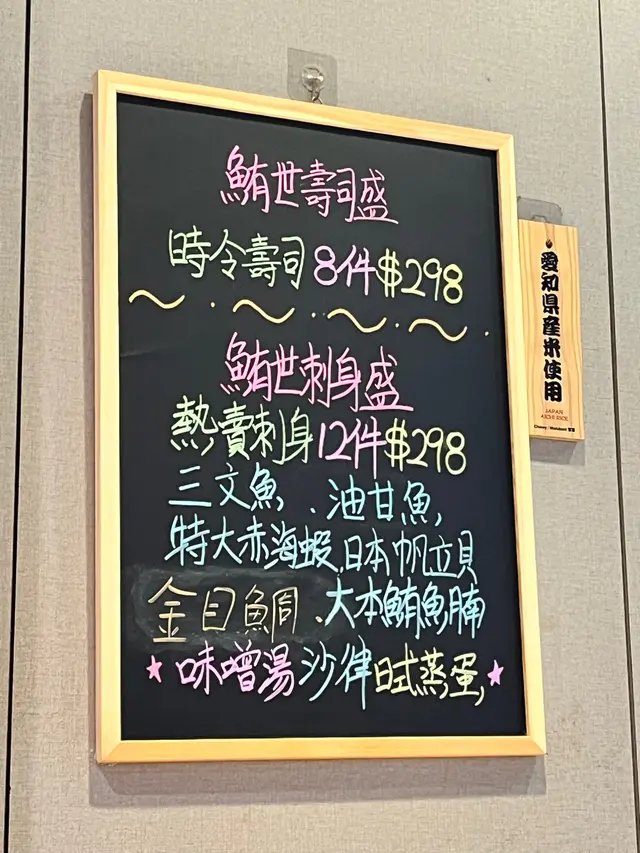 鮪世壽司盛
時令壽司8件$298
鮪世刺身盛
熱賣刺身12件$298
三文魚、油甘魚,
特大赤海蝦,日本帆立貝
金目鯛、大本鮪魚腩
★味噌湯沙律日式蒸蛋,★
愛知県産米使用
JAPAN
AICHI RICE